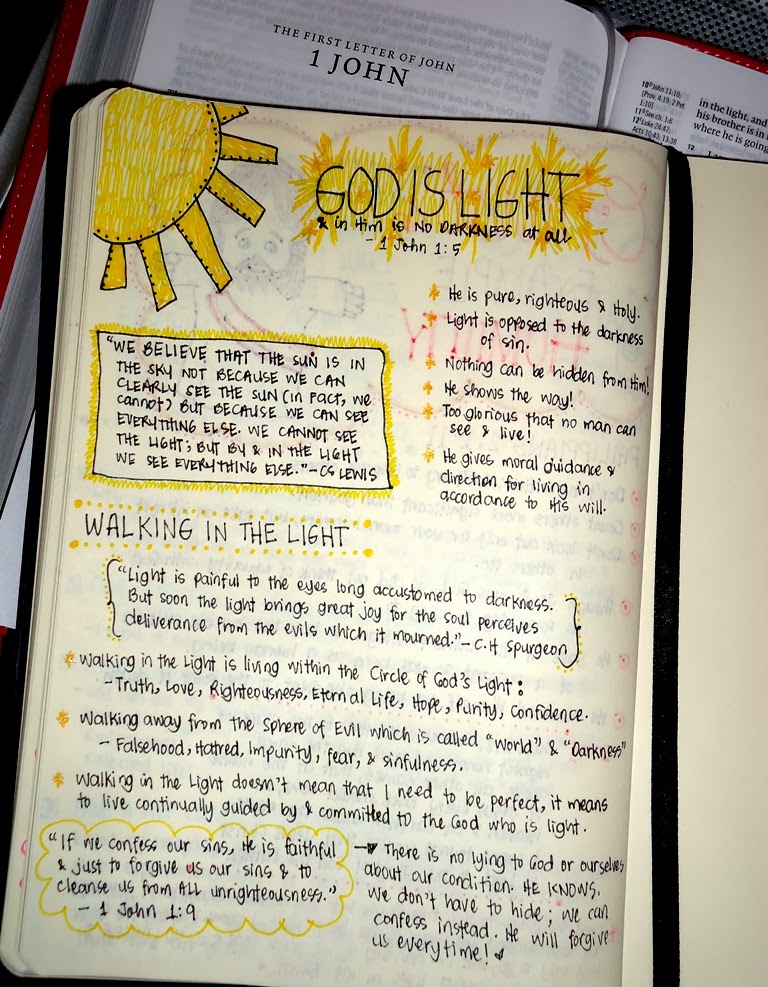 THE FIRST LETTER OF JOHN
1 JOHN
10 P John 11:10;
[Prov. 4:19; 2 Pet.
1:10]
11 S See ch. 1:6
12 t Luke 24:47;
Acts 10:43; 13:38
in the light, and
his brother is in
where he is going
12
GOD IS LIGHT
& in Him is NO DARKNESS at all
- 1 John 1:5
He is pure, righteous & Holy.
Light is opposed to the darkness
of sin.
Nothing can be hidden from Him!
He shows the way!
Too glorious that no man can
see & live!
He gives moral guidance &
direction for living in
accordance to His will.
"WE BELIEVE THAT THE SUN IS IN
THE SKY NOT BECAUSE WE CAN
CLEARLY SEE THE SUN (in fact, we
cannot) BUT BECAUSE WE CAN SEE
EVERYTHING ELSE. WE CANNOT SEE
THE LIGHT; BUT BY & IN THE LIGHT
WE SEE EVERYTHING ELSE." - CS LEWIS
WALKING IN THE LIGHT
"Light is painful to the eyes long accustomed to darkness.
But soon the light brings great joy for the soul perceives
deliverance from the evils which it mourned." - C.H Spurgeon
Walking in the Light is living within the Circle of God's Light:
- Truth, Love, Righteousness, Eternal Life, Hope, Purity, Confidence.
Walking away from the Sphere of Evil which is called "world" & "Darkness"
- Falsehood, Hatred, Impurity, fear, & sinfulness.
Walking in the Light doesn't mean that I need to be perfect, it means
to live continually guided by & committed to the God who is light.
"If we confess our sins, He is faithful
& just to forgive us our sins & to
cleanse us from ALL unrighteousness."
- 1 John 1:9
There is no lying to God or ourselves
about our condition. HE KNOWS.
We don't have to hide; we can
confess instead. He will forgive
us everytime!